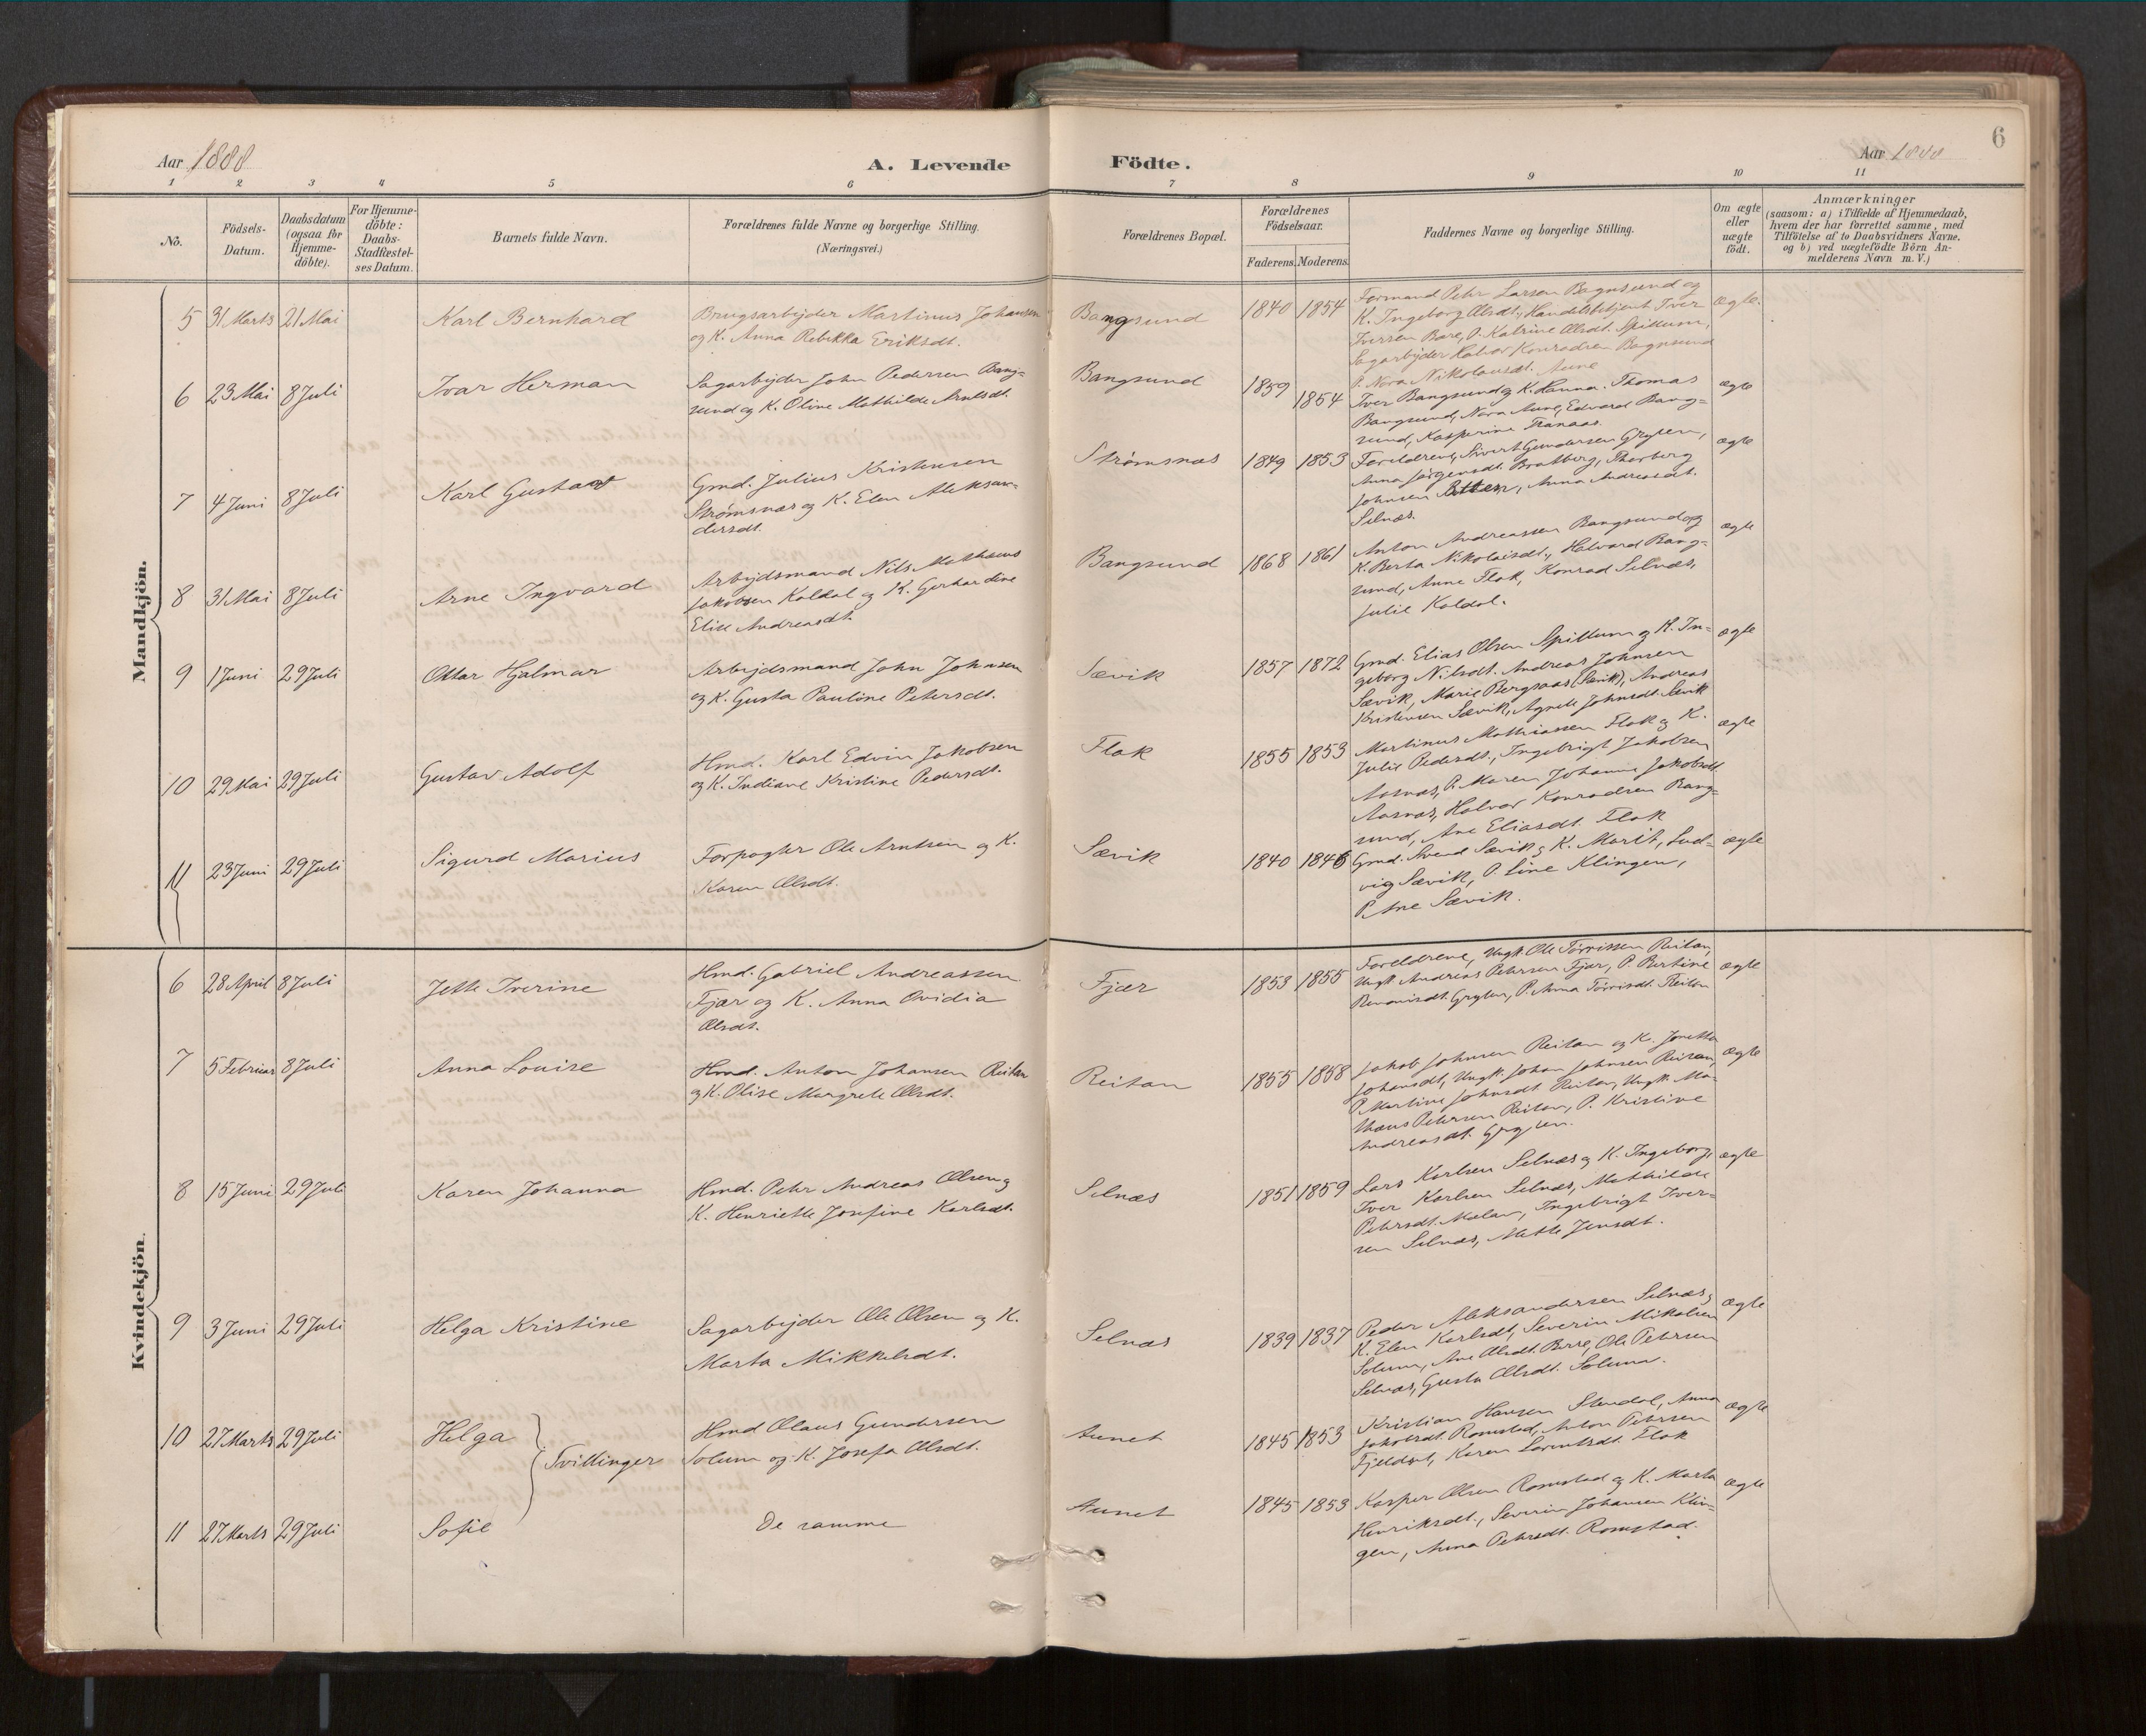 6
Aar 1888
A. Levende Födte.
Aar 1888
1 2 3 4 5 6 7 8 9 10 11
No.
Födsels-
Datum.
Daabsdatum
(ogsaa for
Hjemme-
döbte).
For Hjemme-
döbte:
Daabs-
Stadfæstel-
ses Datum.
Barnets fulde Navn.
Forældrenes fulde Navne og borgerlige Stilling.
(Næringsvei.)
Forældrenes Bopæl.
Forældrenes
Födselsaar.
Faderens. Moderens.
Faddernes Navne og borgerlige Stilling.
Om ægte
eller
uægte
födt.
Anmærkninger
(saasom: a) i Tilfælde af Hjemmedaab,
hvem der har forrettet samme, med
Tilföielse af to Daabsvidners Navne,
og b) ved uægtefödte Börn An-
melderens Navn m. V.)
Mandkjön.
5 31 Marts 21 Mai
Karl Bernhard
Brugsarbeider Martinus Johansen
og K. Anna Rebekka Eriksdt.
Bangsund
1840 1854
Formand Peter Larsen Bagnsund og
K. Ingeborg Olsdt., Handelsbetjent Iver
Iversen Bare, P. Katrine Olsdt. Spillum,
Sagarbeider Halvor Konradsen Bagnsund
P. Nora Nikolausdt. Aune
ægte.
6 23 Mai 8 Juli
Ivar Herman
Sagarbeider John Pedersen Bang-
sund og K. Oline Mathilde Arntsdt.
Bangsund
1859 1854
Iver Bangsund og K. Hanna. Thomas
Bangsund, Nora Aune, Edvard Bang-
sund, Kasperine Tranaas.
ægte
7 4 Juni 8 Juli
Karl Gustav
Gmd. Julius Kristensen
Strømsnæs og K. Elen Aleksan-
dersdt.
Strømsnæs
1849 1853
Foreldrene, Sivert Gundersen Gryten,
Anna Jørgensdt. Bratberg, Thorberg
Johnsen, Anna Andreasdt.
Selnæs.
ægte
8 31 Mai 8 Juli
Arne Ingvard
Arbejdsmand Nils Mathæus
Jakobsen Kaldal og K. Gerhardine
Elise Andreasdt.
Bangsund
1868 1861
Anton Andreassen Bangsund og
K. Berta Nikolaisdt., Halvard Bang-
sund, Anne Flak, Konrad Selnæs,
Julie Kaldal.
ægte
9 1 Juni 29 Juli
Ottar Hjalmar
Arbejdsmand John Johnsen
og K. Gusta Pauline Petersdt.
Sævik
1857 1872
Gmd. Elias Olsen Spillum og K. In-
geborg Nilsdt. Andreas Johnsen
Sævik, Marie Bergsaas (Sævik), Andreas
Kristensen Sævik, Agnete Johnsdt. Sævik
ægte
10 29 Mai 29 Juli
Gustav Adolf
Hmd. Karl Edvin Jakobsen
og K. Indiane Kristine Pedersdt.
Flak
1855 1853
Martinus Mathiassen Flak og K.
Julie Pedersdt., Ingebrigt Jakobsen
Aasnæs, P. Maren Johanna Jakobsdt.
Aasnæs, Halvor Konradsen Bang-
sund, Ane Eliasdt. Flak
ægte
11 23 Juni 29 Juli
Sigurd Marius
Forpagter Ole Arntsen og K.
Karen Olsdt.
Sævik
1840 1846
Gmd. Svend Sævik og K. Marit, Lud-
vig Sævik, P. Line Klingen,
P. Ane Sævik.
ægte
Kvindekjön.
6 28 April 8 Juli
Jette Iverine
Hmd. Gabriel Andreassen
Fjær og K. Anna Ovidia
Olsdt.
Fjær
1853 1855
Foreldrene, Ungk. Ole Tørrissen Reitan,
Ungk. Andreas Petersen Fjær, P. Bertine
Gryten, P. Anna Tørrisdt. Reitan
ægte
7 5 Februar 8 Juli
Anna Louise
Hmd. Anton Johansen Reitan
og K. Olise Margrete Olsdt.
Reitan
1855 1858
Jakob Johnsen Reitan og K. Jonetta
Johansdt., Ungk. Johan Johnsen Reitan,
P. Martine Johnsdt. Reitan, Ungk. Ma-
thæus Petersen Reitan, P. Kristine
Andreasdt. Gryten.
ægte
8 15 Juni 29 Juli
Karen Johanna
Hmd. Peter Andreas Olsen og
K. Henriette Josefine Karlsdt.
Selnæs
1851 1859
Lars Karlsen Selnæs og K. Ingeborg,
Iver Karlsen Selnæs, Mathilde
Petersdt. Malan, Ingebrigt Iver-
sen Selnæs, Mette Jensdt.
ægte
9 3 Juni 29 Juli
Helga Kristine
Sagarbejder Ole Olsen og K.
Marta Mikkelsdt.
Selnæs
1839 1837
Peder Aleksandersen Selnæs,
K. Elen Karlsdt., Severin Mikalsen
Solum, Ane Olsdt. Bare, Ole Petersen
Selnæs, Gusta Olsdt. Solum.
ægte
10 27 Marts 29 Juli
Helga
Tvillinger
Hmd Olaus Gundersen
Solum og K. Josefa Olsdt.
Aunet
1845 1853
Kristian Hansen Slendal, Anna
Jakobsdt. Romstad, Anton Petersen
Fjelldal, Karen Larentsdt. Flak
ægte
11 27 Marts 29 Juli
Sofie
De samme
Aunet
1845 1853
Kasper Olsen Romstad og K. Marta
Henriksdt., Severin Johansen Klin-
gen, Anna Petersdt. Romstad.
ægte